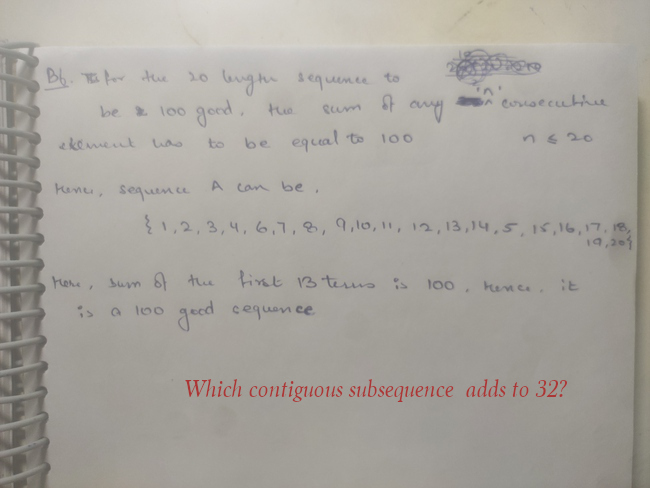 B6. For the 20 length sequence to
be 100 good, the sum of any 'n' consecutive
element has to be equal to 100 n ≤ 20
Hence, sequence A can be,
{1, 2, 3, 4, 6, 7, 8, 9, 10, 11, 12, 13, 14, 5, 15, 16, 17, 18,
19, 20}
Here, sum of the first 13 terms is 100, hence, it
is a 100 good sequence
Which contiguous subsequence adds to 32?